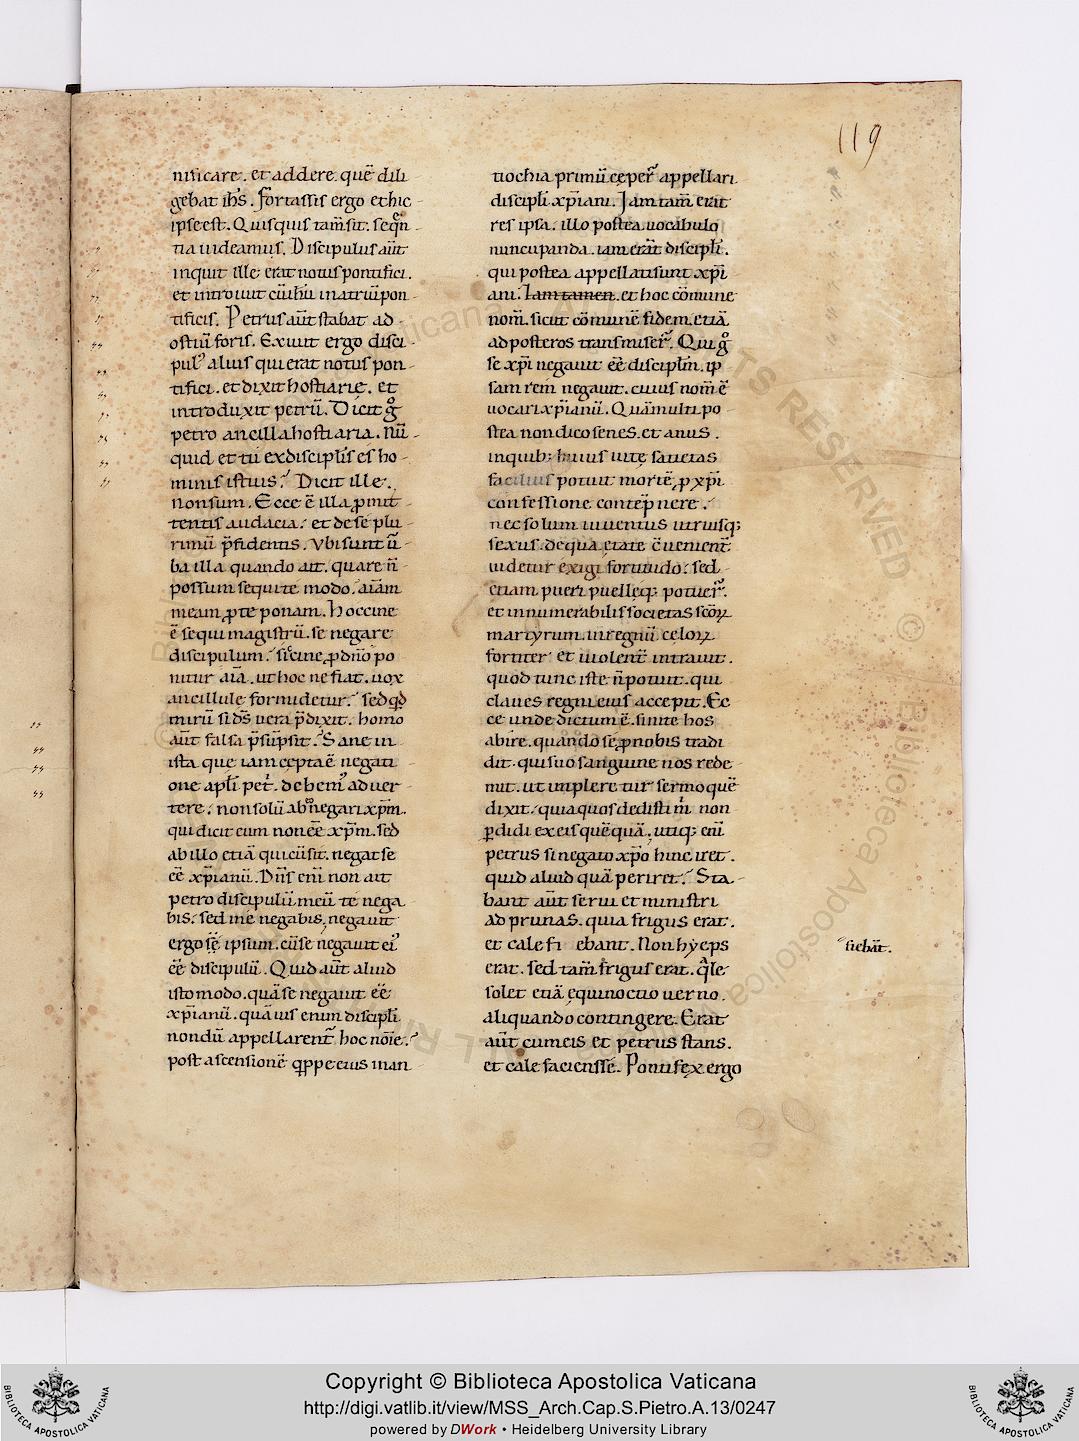 119
nificare. et addere. quē dili
gebat ih̄s. Fortassis ergo et hic
ipse est. Quisquis tam̄ sit. seqn̄
tia uideamus. Discipulus aūt
inquit ille erat notus pontifici.
et introiuit cū ih̄u in atriū pon
tificis. Petrus aūt stabat ad
ostiū foris. Exiuit ergo disci
pul᾽ alius qui erat notus pon
tifici. et dixit hostiarię. et
introduxit petrū. Dicit g̊
petro ancilla hostiaria. Nū
quid et tu ex discipl̄is es ho
minis istius? Dicit ille.
non sum. Ecce ē illa ꝓmit
tentis audacia. et de se plu
rimū p̄fidentis. Vbi sunt ū
ba illa quando ait. quare n̄
possum sequi te modo. aīam
meam ꝓ te ponam. Hoccine
ē sequi magistrū. se negare
discipulum? siccine ꝓ dn̄o po
nitur aīa. ut hoc ne fiat. uox
ancillule formidetur? Sed qd
mirū si ds̄ uera p̄dixit. homo
aūt falsa p̄sūpsit? Sane in
ista que iam cepta ē negati
one apl̄i pet̄. debem᾽ aduer
tere. non solū ab eo negari xp̄m.
qui dicit eum non eē xp̄m. sed
ab illo etiā qui cū sit. negat se
eē xp̄ianū. Dn̄s eni̅ non ait
petro discipulū meū te nega
bis. sed me negabis. negauit
ergo ipsum. cū se negauit ei᾽
eē discipulū. Quid aūt aliud
isto modo. quā se negauit eē
xp̄ianū. quāuis enim discipl̄i
nondū appellarent᷑ hoc noīe?
post ascensionē qꝓpe eius in an
tiochia primū ceper̄ appellari
discipl̄i xp̄iani. Jam tam̄ erat
res ipsa. illo postea uocabulo
nuncupanda. iam erāt discipl̄i.
qui postea appellati sunt xp̄i
ani. Iam tamen. et hoc cōmune
nom̄. sicut cōmunē fidem etiā
ad posteros transmiser̄. Qui g̊
se xp̄i negauit eē discipl̄m. ip
sam rem̄ negauit. cuius nom̄ ē
uocari xp̄ianū. Quā multi po
stea non dico senes. et anus.
in quib; huius uite satietas
facilius potuit mortē ꝓ xp̄i
confessione contēpnere.
nec solum iuuentus utriusq;
sexus. de qua etate cū uenient̄
uidetur exigi fortitudo. sed
etiam pueri puelleq; potuer̄.
et innumerabilis societas sc̄oꝝ
martyrum. in regnū celoꝝ
fortiter et uiolent̄ intrauit.
quod tunc iste n̄ potuit. qui
claues regni eius accepit. Ec
ce unde dictum ē. sinite hos
abire. quando se ꝓ nobis tradi
dit. qui suo sanguine nos rede
mit. ut impleretur sermo quē
dixit. quia quos dedisti m̄ non
ꝑdidi ex eis quēquā. utiq; eni̅
petrus si negato xp̄o hinc iret.
quid aliud quā periret? Sta
bant aūt serui et ministri
ad prunas. quia frigus erat.
et calefi ebant. Non hyeps
erat. sed tam̄ frigus erat. q̄le
solet etiā equinoctio uerno.
aliquando contingere. Erat
aūt cum eis et petrus stans.
et calefaciens sē. Pontifex ergo
fiebāt.
Copyright © Biblioteca Apostolica Vaticana
http://digi.vatlib.it/view/MSS_Arch.Cap.S.Pietro.A.13/0247
powered by DWork • Heidelberg University Library